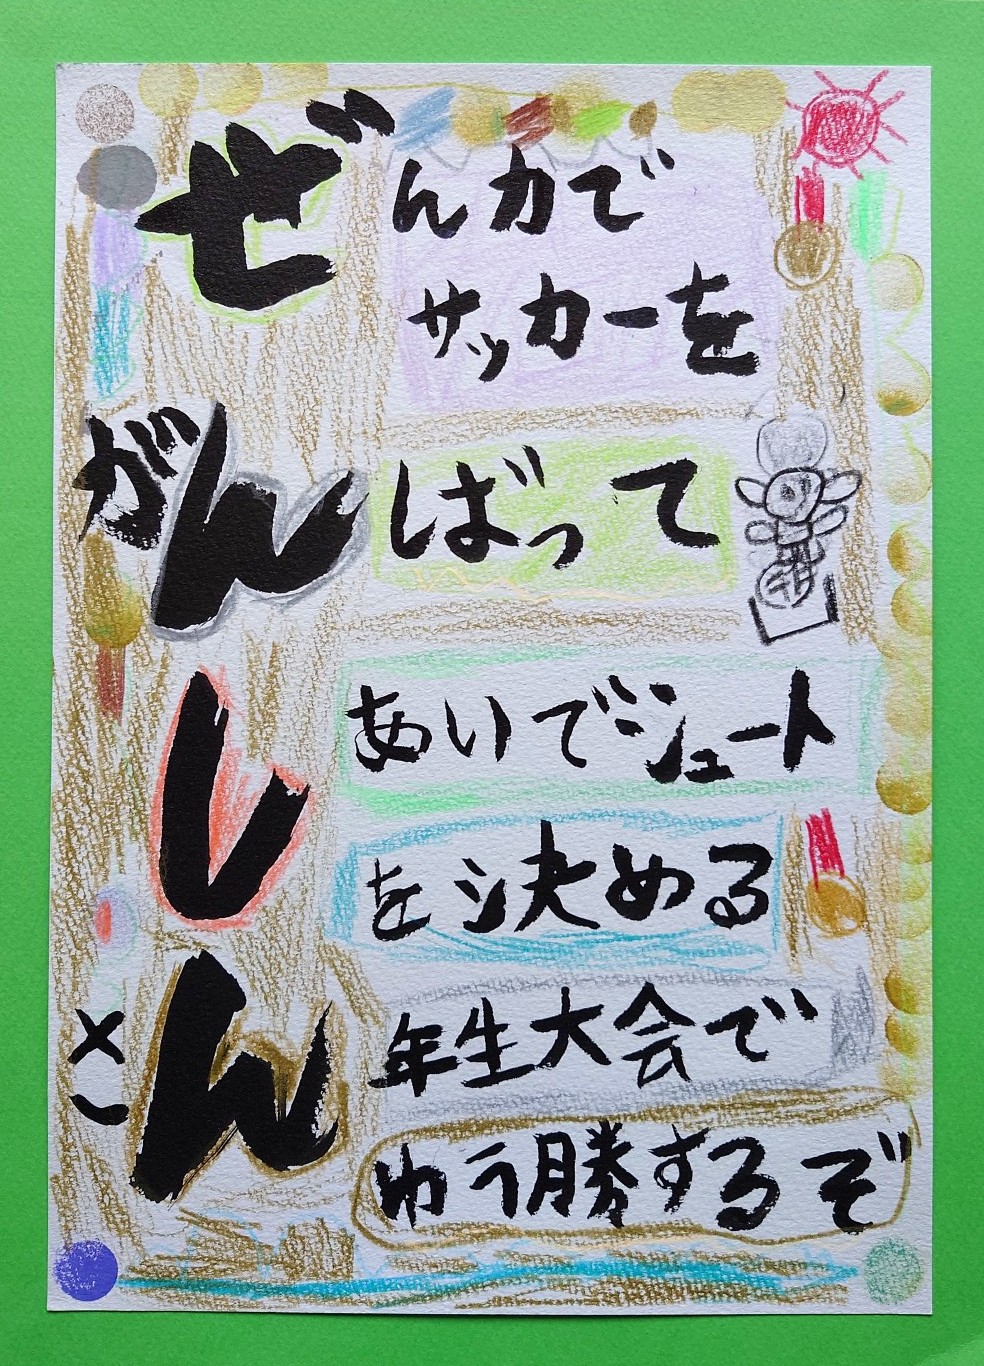 ぜん力で
サッカーを
がんばって
しあいでシュート
を決める
さん年生大会で
ゆう勝するぞ